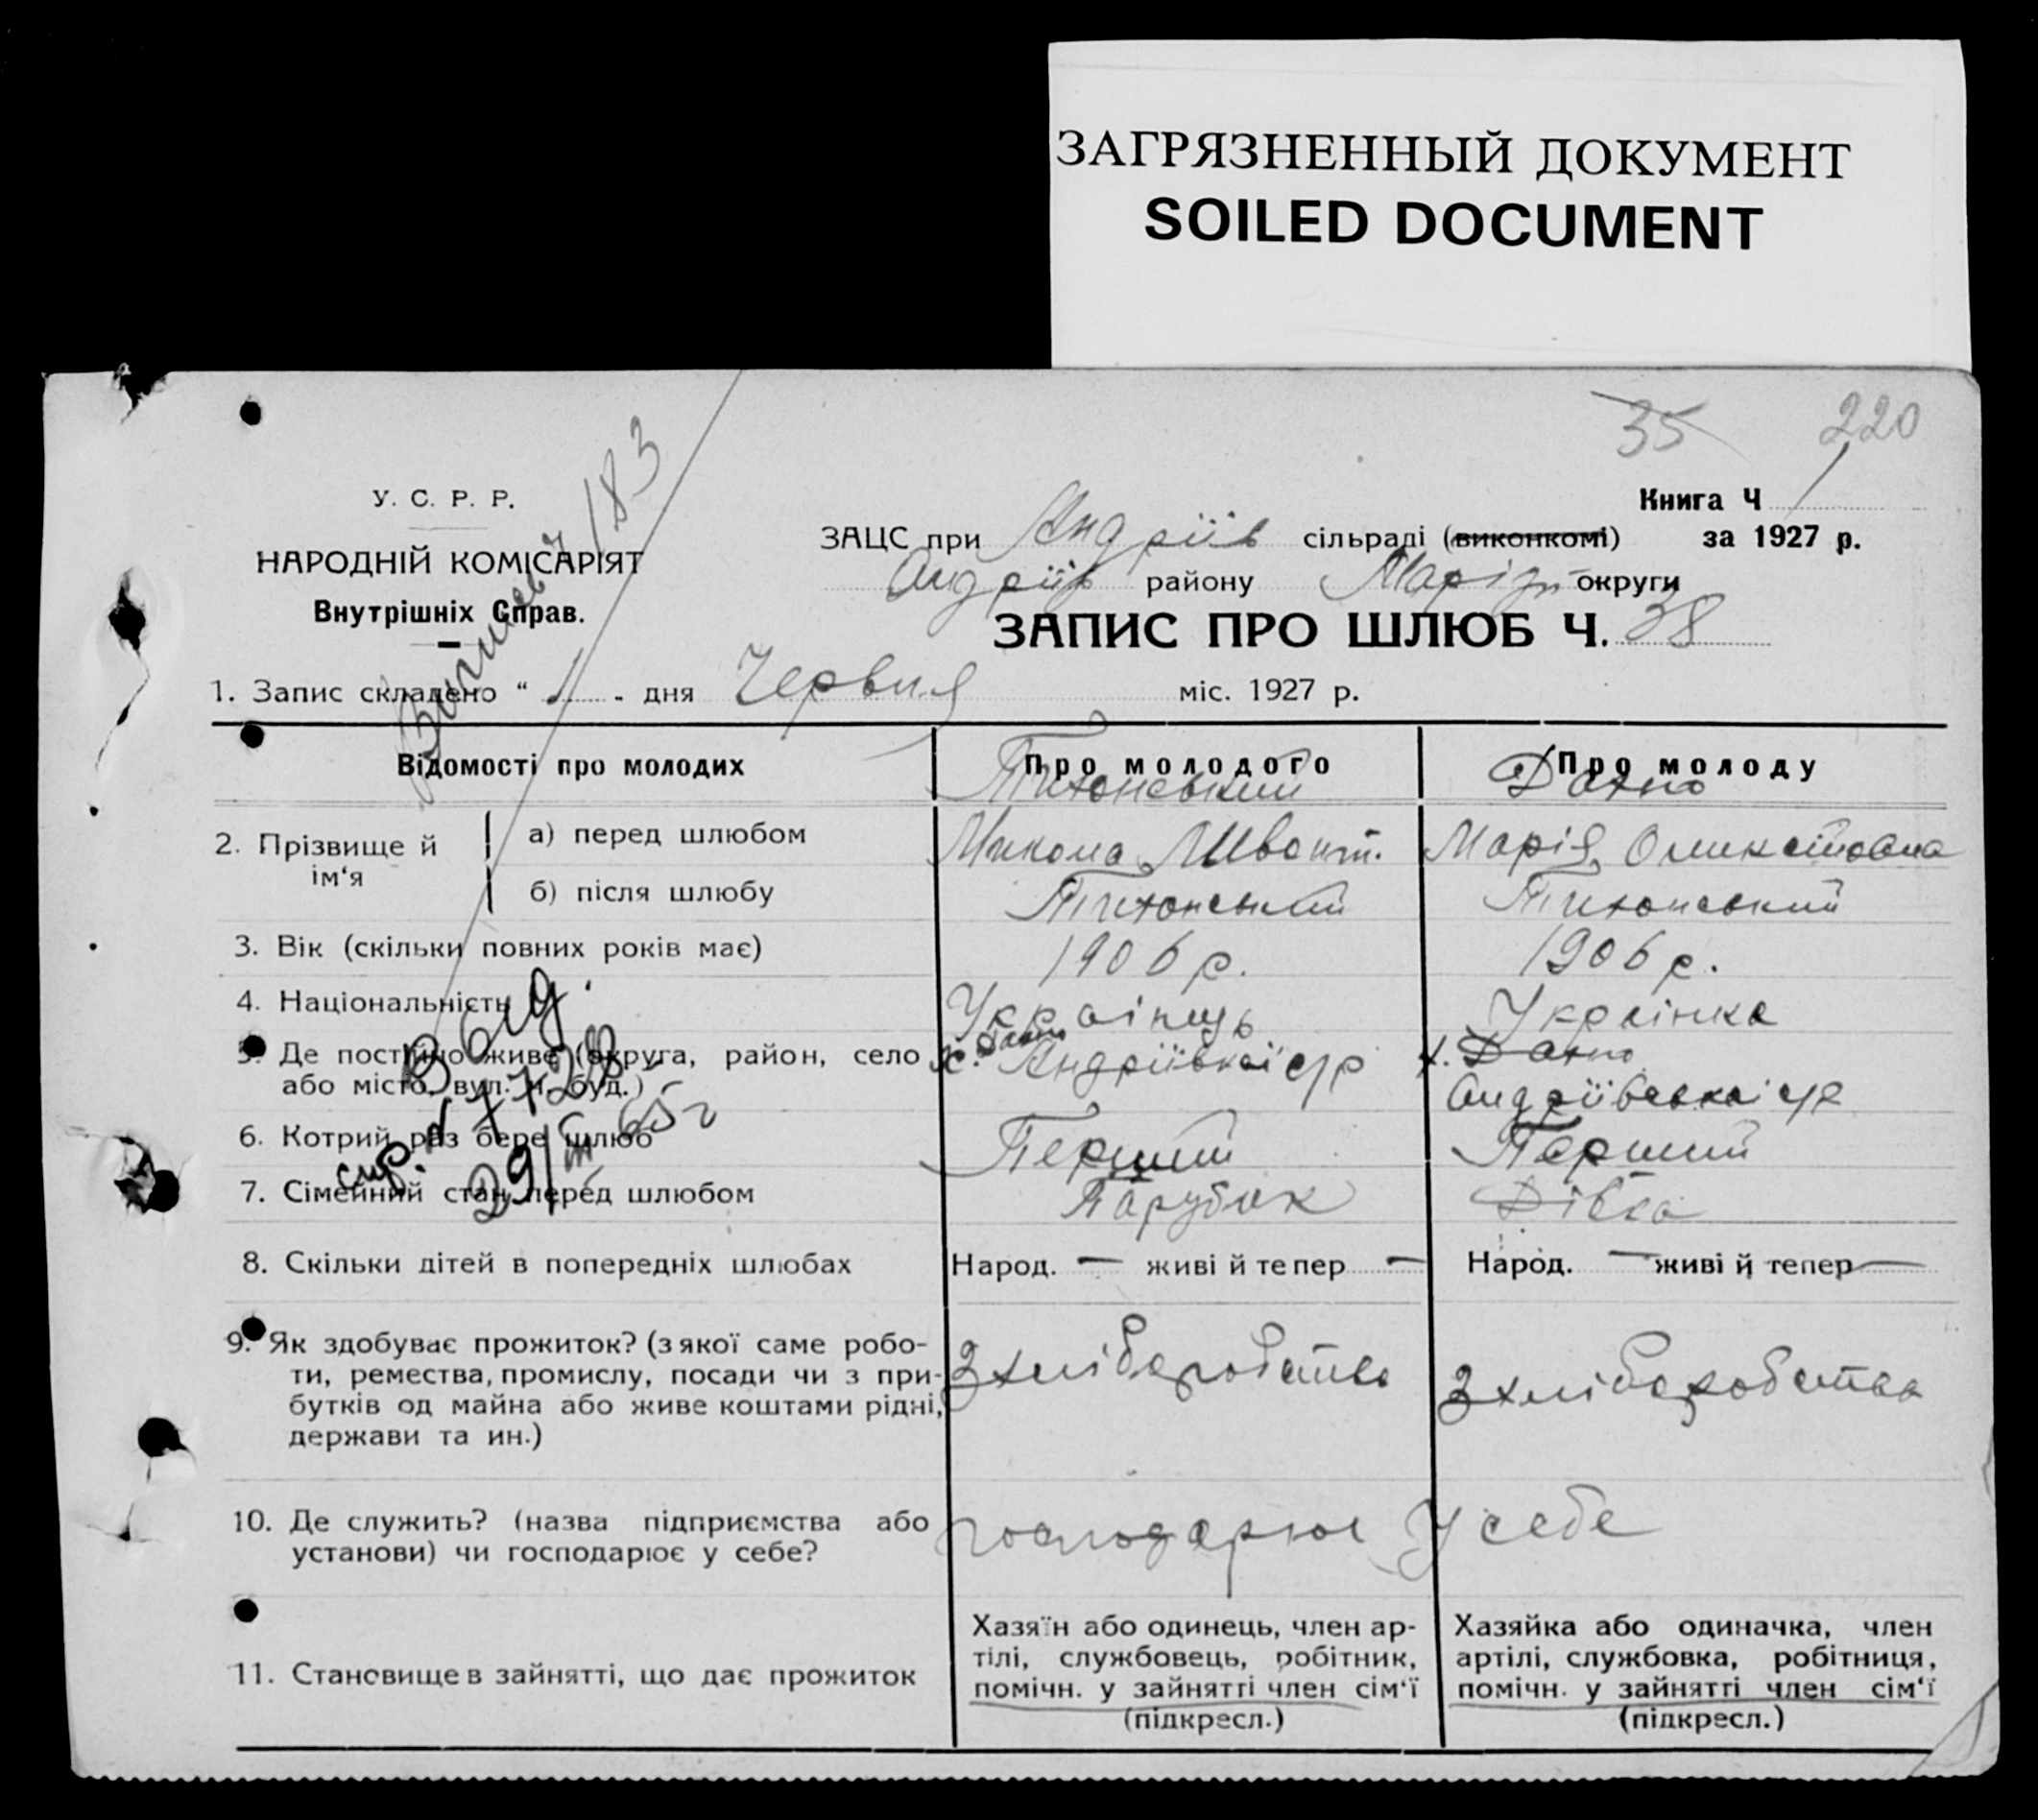 ЗАГРЯЗНЕННЫЙ ДОКУМЕНТ
SOILED DOCUMENT
35 220
У. С. Р. Р.
НАРОДНІЙ КОМІСАРІЯТ
Внутрішніх Справ.
183
Книга Ч 1
за 1927 р.
ЗАЦС при Андріїв сільраді (виконкомі)
Андріїв району Маріуп округи
ЗАПИС ПРО ШЛЮБ Ч. 38
1. Запис складено “ 1 - дня Червня міс. 1927 р.
Відомості про молодих
Про молодого
Про молоду
2. Прізвище й ім‘я
а) перед шлюбом
Тихонський
Микола
Дахно
Марія
б) після шлюбу
Тихонський
Тихонський
3. Вік (скільки повних років має)
1906 р.
1906 р.
4. Національність
Українець
Українка
5. Де постійно живе (округа, район, село
або місто, вул. й буд.)
х. Дахно
Андріївської с/р
х. Дахно
Андріївської с/р
6. Котрий раз бере шлюб
Перший
Перший
7. Сімейний стан перед шлюбом
Парубок
Дівка
Выд.
спр. № 7728
29/III 65 г
8. Скільки дітей в попередніх шлюбах
Народ. — живі й тепер —
Народ. — живі й тепер —
9. Як здобуває прожиток? (з якої саме робо-
ти, ремества, промислу, посади чи з при-
бутків од майна або живе коштами рідні,
держави та ин.)
З хліборобства
З хліборобства
10. Де служить? (назва підприємства або
установи) чи господарює у себе?
господарює у себе
11. Становище в зайнятті, що дає прожиток
Хазяїн або одинець, член ар-
тілі, службовець, робітник,
помічн. у зайнятті член сім‘ї
(підкресл.)
Хазяйка або одиначка, член
артілі, службовка, робітниця,
помічн. у зайнятті член сім‘ї
(підкресл.)